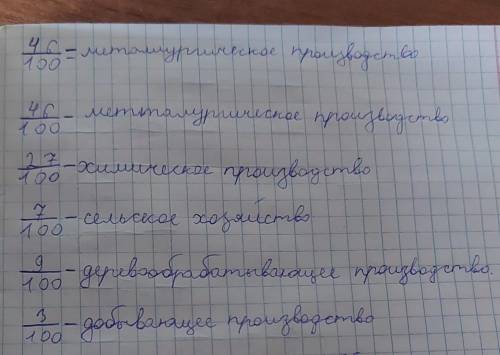 46/100 - металлургическое производство
46/100 - метталургическое производство
27/100 - химическое производство
7/100 - сельское хозяйство
9/100 - деревообрабатывающее производство.
3/100 - добывающее производство